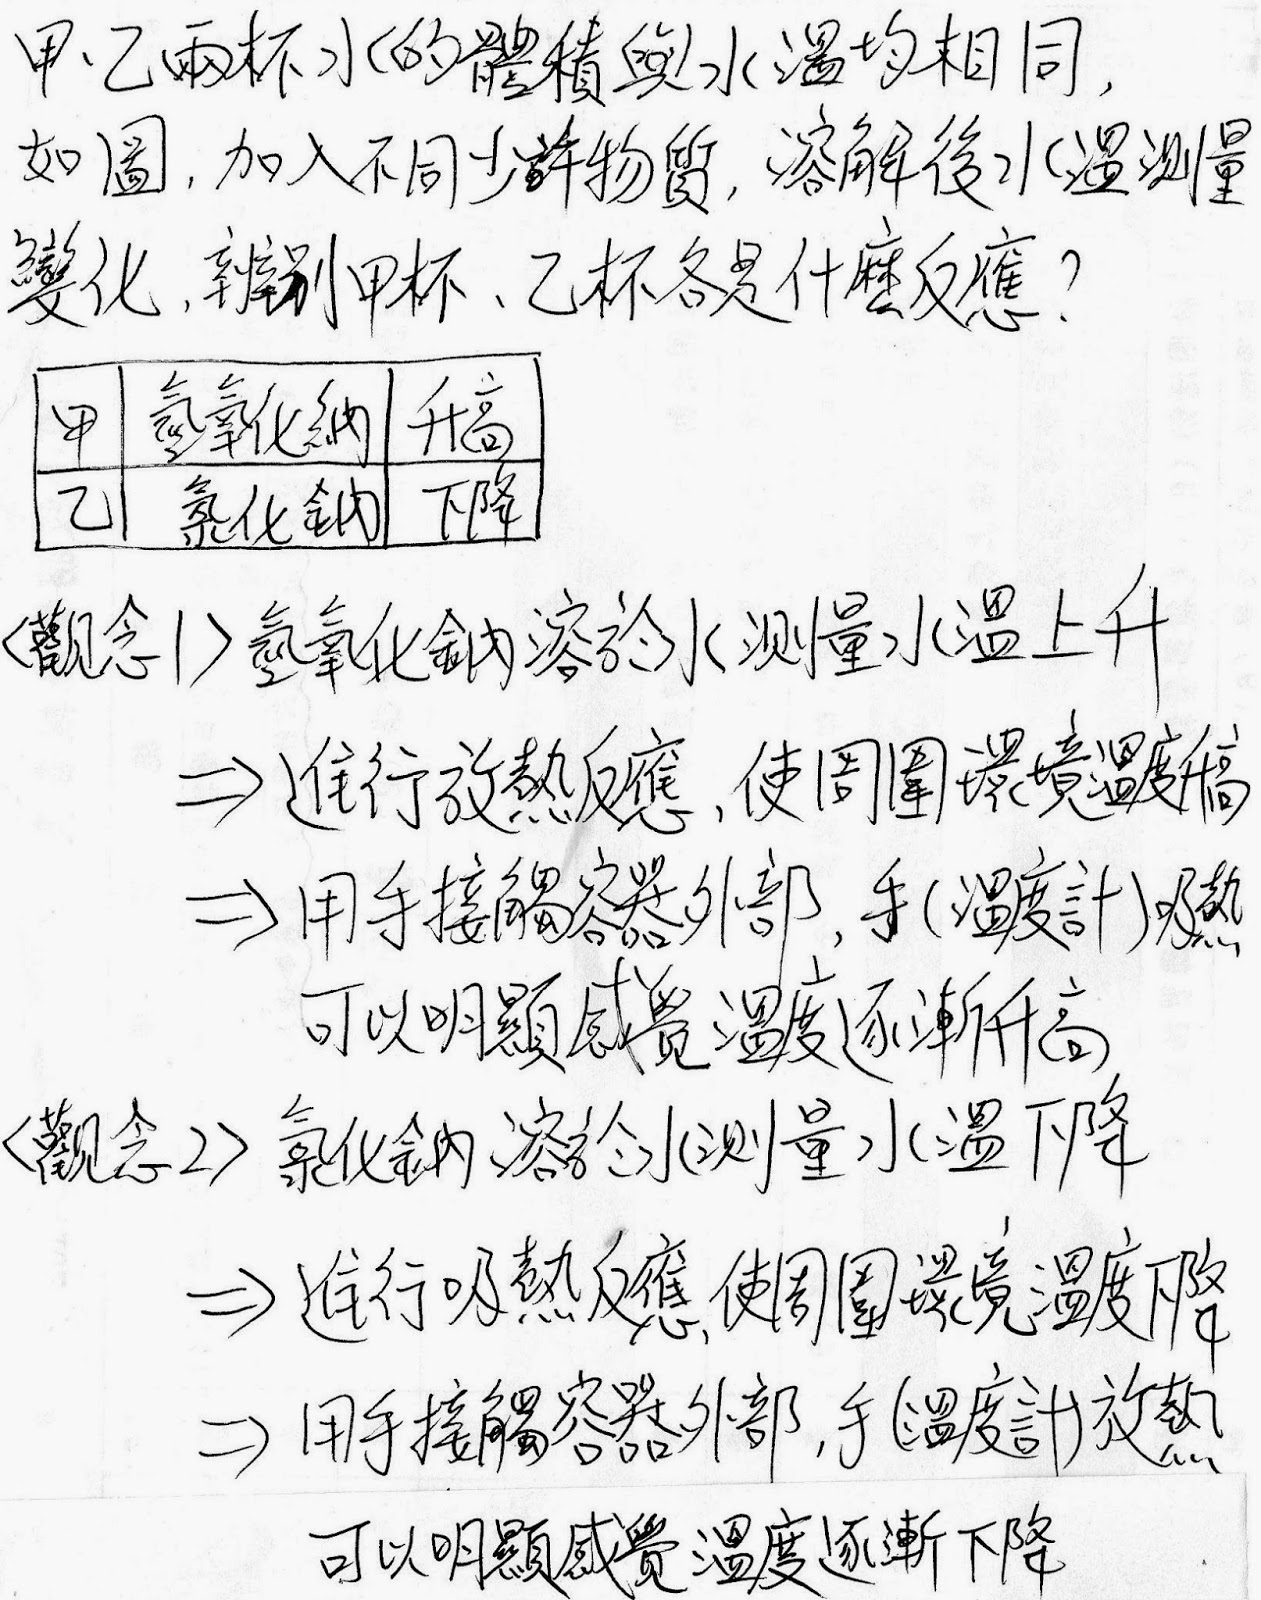 甲、乙兩杯水的體積與水溫均相同,
如圖,加入不同少許物質,溶解後水溫測量
變化,辨別甲杯、乙杯各是什麼反應?
甲 氫氧化鈉 升高
乙 氯化鈉 下降
<觀念1> 氫氧化鈉溶於水測量水溫上升
=> 進行放熱反應,使周圍環境溫度升高
=> 用手接觸容器外部,手(溫度計)吸熱
可以明顯感覺溫度逐漸升高
<觀念2> 氯化鈉溶於水測量水溫下降
=> 進行吸熱反應,使周圍環境溫度下降
=> 用手接觸容器外部,手(溫度計)放熱
可以明顯感覺溫度逐漸下降